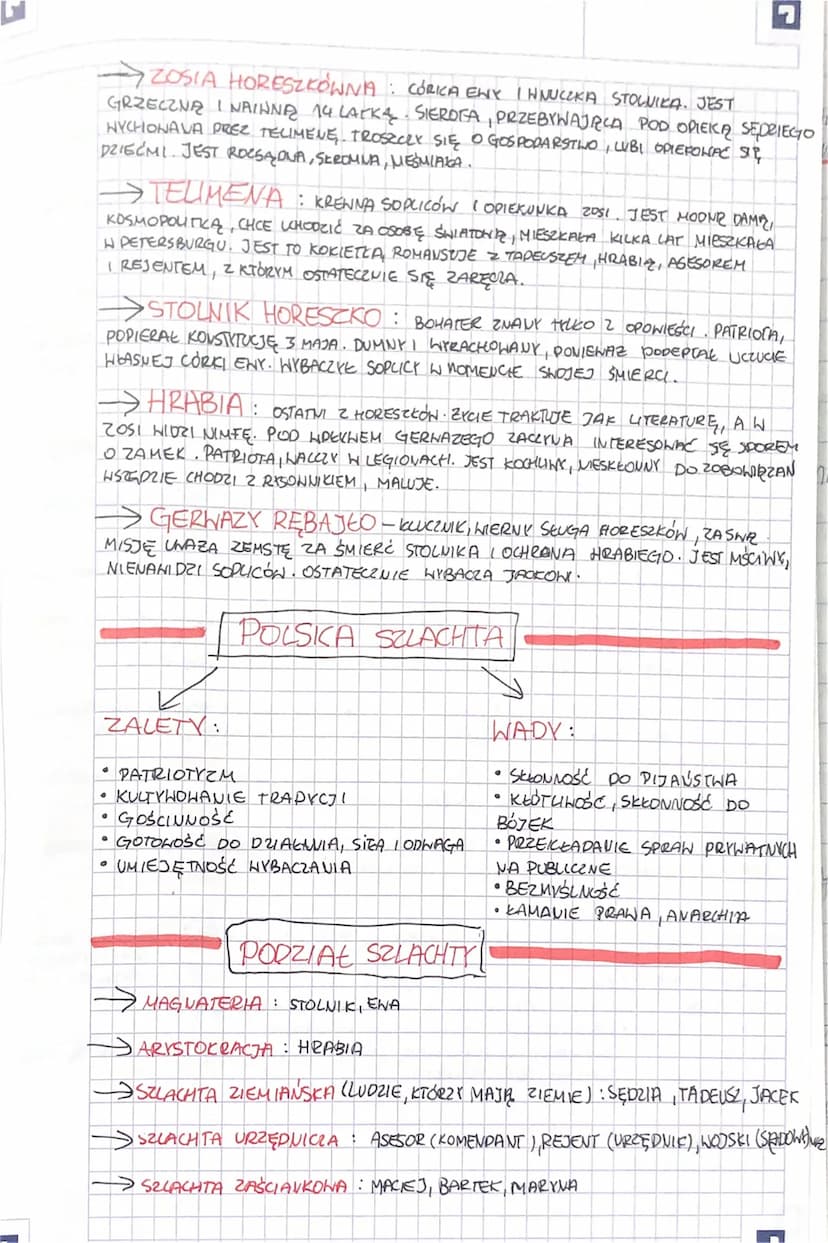 → ZOSIA HORESZKÓWNA : CÓRKA EWY I WNUCZKA STOLNIKA. JEST
GRZECZNĄ I NAIWNĄ 14 LATKĄ. SIEROTA, PRZEBYWAJĄCA POD OPIEKĄ SĘDZIEGO
WYCHOWANA PRZEZ TELIMENĘ. TROSZCZY SIĘ O GOSPODARSTWO, LUBI OPIEKOWAĆ SIĘ
DZIEĆMI. JEST ROZSĄDNA, SKROMNA, NIEŚMIAŁA.
→ TELIMENA : KREWNA SOPLICÓW I OPIEKUNKA ZOSI. JEST MODNĄ DAMĄ,
KOSMOPOLITKĄ, CHCE UCHODZIĆ ZA OSOBĘ ŚWIATOWĄ, MIESZKAŁA KILKA LAT MIESZKAŁA
W PETERSBURGU. JEST TO KOKIETKA, ROMANSUJE Z TADEUSZEM, HRABIĄ, ASESOREM
I REJENTEM, Z KTÓRYM OSTATECZNIE SIĘ ZARĘCZA.
→ STOLNIK HORESZKO : BOHATER ZNANY TYLKO Z OPOWIEŚCI. PATRIOTA,
POPIERAŁ KONSTYTUCJĘ 3 MAJA. DUMNY I WYRACHOWANY, PONIEWAŻ PODEPTAŁ UCZUCIE
WŁASNEJ CÓRKI EWY. WYBACZYŁ SOPLICY W MOMENCIE SWOJEJ ŚMIERCI.
→ HRABIA : OSTATNI Z HORESZKÓW. ŻYCIE TRAKTUJE JAK LITERATURĘ, A W
ZOSI WIDZI NIMFĘ. POD WPŁYWEM GERWAZEGO ZACZYNA INTERESOWAĆ SIĘ SPOREM
O ZAMEK. PATRIOTA, WALCZY W LEGIONACH. JEST KOCHLIWY, NIESKŁONNY DO ZOBOWIĄZAŃ
WSZĘDZIE CHODZI Z RYSOWNIKIEM, MALUJE.
→ GERWAZY RĘBAJŁO – KLUCZNIK, WIERNY SŁUGA HORESZKÓW, ZA SWĄ
MISJĘ UWAŻA ZEMSTĘ ZA ŚMIERĆ STOLNIKA I OCHRONĄ HRABIEGO. JEST MŚCIWY,
NIENAWIDZI SOPLICÓW. OSTATECZNIE WYBACZA JACKOWI.
POLSKA SZLACHTA
ZALETY:
• PATRIOTYZM
• KULTYWOWANIE TRADYCJI
• GOŚCINNOŚĆ
• GOTOWOŚĆ DO DZIAŁNIA, SIŁA I ODWAGA
• UMIEJĘTNOŚĆ WYBACZANIA
WADY:
• SKŁONNOŚĆ DO PIJAŃSTWA
• KŁÓTLIWOŚĆ, SKŁONNOŚĆ DO
BÓJEK
• PRZEKŁADANIE SPRAW PRYWATNYCH
NA PUBLICZNE
• BEZMYŚLNOŚĆ
• ŁAMANIE PRAWA, ANARCHIA
PODZIAŁ SZLACHTY
→ MAGNATERIA : STOLNIK, EWA
→ ARYSTOKRACJA : HRABIA
→ SZLACHTA ZIEMIAŃSKA (LUDZIE, KTÓRZY MAJĄ ZIEMIE) : SĘDZIA, TADEUSZ, JACEK
→ SZLACHTA URZĘDNICZA : ASESOR (KOMENDANT), REJENT (URZĘDNIK), WOJSKI (SĄDOWNIK)
→ SZLACHTA ZAŚCIANKOWA : MACIEJ, BARTEK, MARYNA